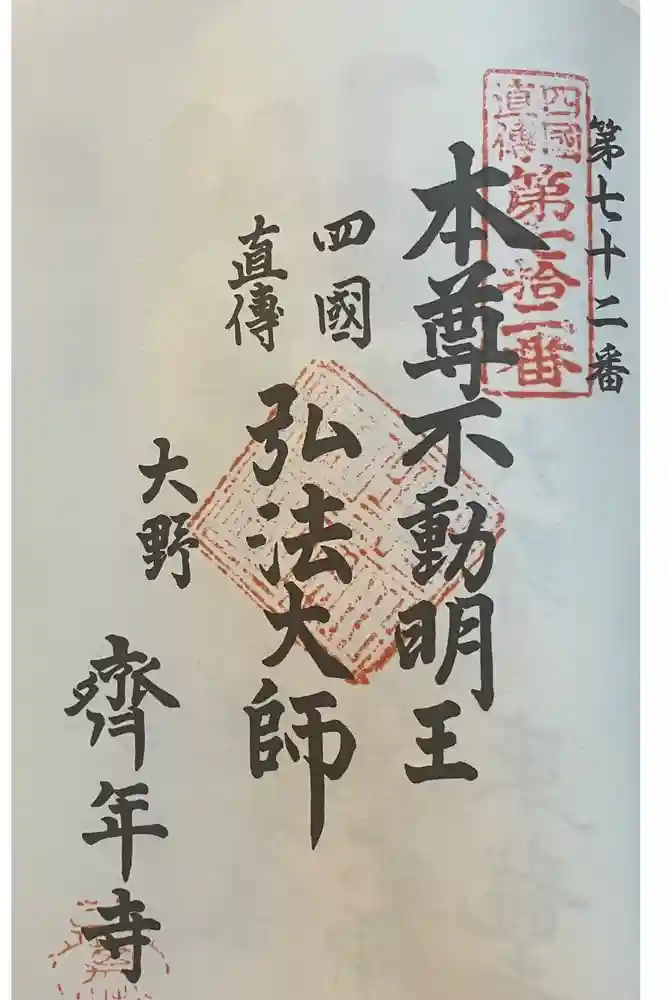 第七十二番
四國
直傳
第七拾二番
本尊不動明王
四國
直傳
弘法大師
大野
齊年寺